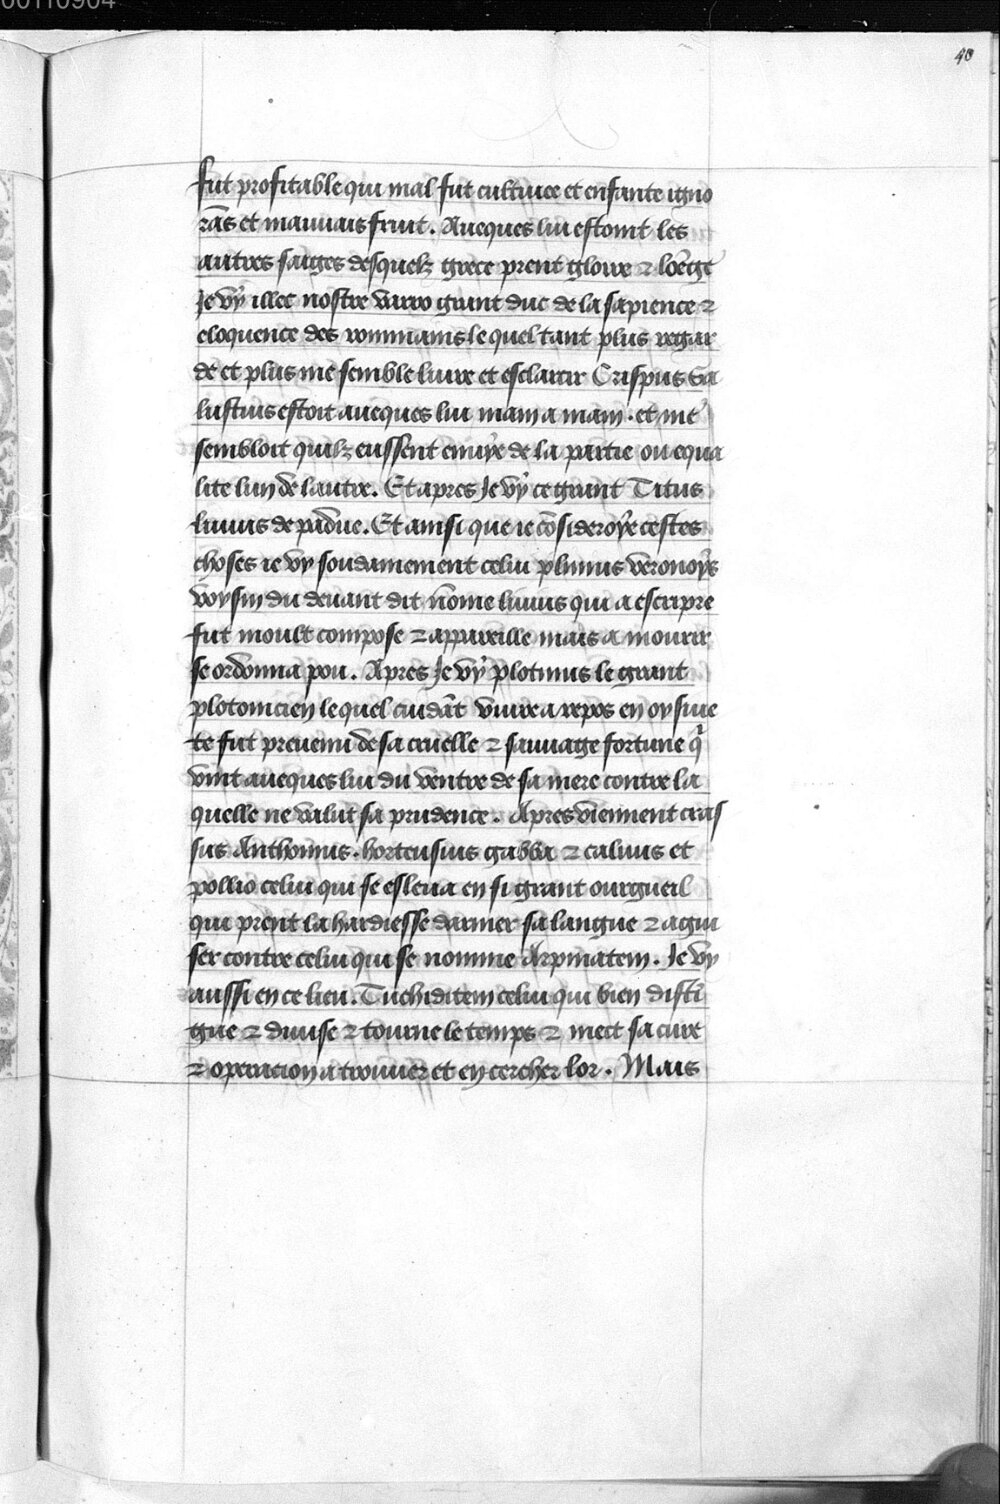 40
fut profitable qui mal fut cultiuee et enfante igno
rãs et mauuais fruit. Auecques lui estoient les
autres saiges desquelz grece prent gloire ⁊ loẽge
Je vy illec nostre varro grant duc de la sapience ⁊
eloquence des rommains lequel tant plus regar
de et plus me semble luire et esclarcir Crispus Sa
lustius estoit auecques lui main a main. et me
sembloit quilz eussent enuye de la partie ou equa
lite lun de lautre. Et apres Je vy ce grant Titus
liuius de padue. Et ainsi que ie cõsideroye cestes
choses ie vy soudainement celui plinius veronoys
voysin du deuant dit nõme liuius qui a escripre
fut moult compose ⁊ appareille mais a mourir
se ordonna pou. Apres Je vy plotinus le grant
plotonicien lequel cuidãt viure a repos en oysiue
te fut preuenu de sa cruelle ⁊ sauuage fortune q̃
vint auecques lui du ventre de sa mere contre la
quelle ne valut sa prudence. Apres viennent cras
sus Anthonius. hortensius gabba ⁊ caluus et
pollio celui qui se esleua en si grant ourgueil
qui prent la hardiesse darmer sa langue ⁊ agui
ser contre celui qui se nomme Arpinatem. Je vy
aussi en ce lieu. Tuchiditem celui qui bien disti
gue ⁊ diuise ⁊ tourne le temps ⁊ mect sa cure
⁊ operacion a trouuer et en cercher lor. Mais